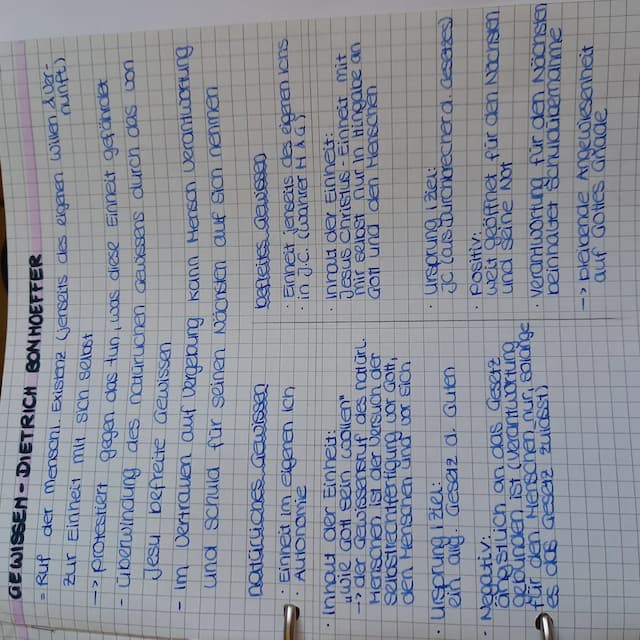 GEWISSEN - DIETRICH BONHOEFFER
= Ruf der menschl. Existenz (jenseits des eigenen Willen & Ver-
nunft)
zur Einheit mit sich selbst
→ protestiert gegen das tun, was diese Einheit gefährdet
- Überwindung des natürlichen Gewissens durch das von
Jesu befreite Gewissen
- Im Vertrauen auf Vergebung kann Mensch Verantwortung
und Schuld für seinen Nächsten auf sich nehmen
natürliches Gewissen
· Einheit im eigenen Ich
· Autonomie
· Inhalt der Einheit:
"Wie Gott sein wollen"
→ der Gewissensruf des natürl.
Menschen ist der Versuch der
Selbstrechtfertigung vor Gott,
den Menschen und vor sich
· Ursprung / Ziel:
ein allg. Gesetz d. Guten
Negativ:
ängstlich an das Gesetz
gebunden ist (Verantwortung
für den Menschen nur, solange
es das Gesetz zulässt)
befreites Gewissen
· Einheit jenseits des eigenen Ichs
in J.C. (wahrer M & G)
· Inhalt der Einheit:
Jesus Christus - Einheit mit
mir selbst nur in Hingabe an
Gott und den Menschen
· Ursprung / Ziel:
JC (als Durchbrecher d. Gesetzes)
· Positiv:
weit geöffnet für den Nächsten
und seine Not
· Verantwortung für den Nächsten
beinhaltet Schuldübernahme
→ bleibende Angewiesenheit
auf Gottes Gnade